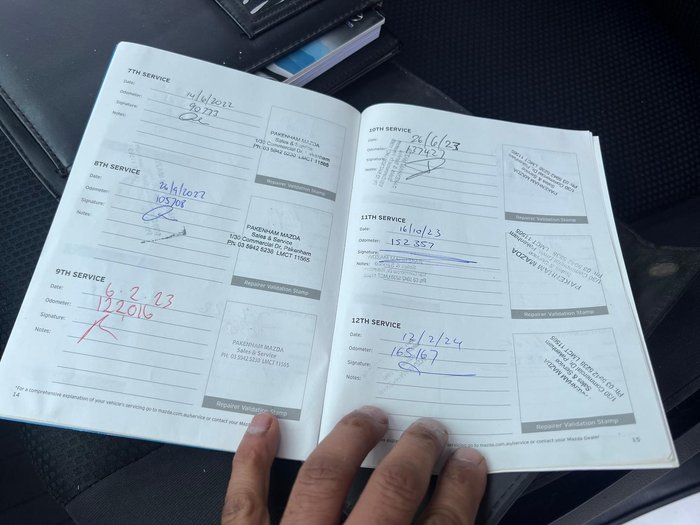 7TH SERVICE
Date: 14/6/2022
Odometer: 90773
Signature:
Notes:
PAKENHAM MAZDA
Sales & Service
1/30 Commercial Dr, Pakenham
Ph: 03 5942 5230 LMCT 11565
Repairer Validation Stamp
8TH SERVICE
Date: 26/9/2022
Odometer: 105708
Signature:
Notes:
PAKENHAM MAZDA
Sales & Service
1/30 Commercial Dr, Pakenham
Ph: 03 5942 5238 LMCT 11565
Repairer Validation Stamp
9TH SERVICE
Date: 6.2.23
Odometer: 122016
Signature:
Notes:
PAKENHAM MAZDA
Sales & Service
PH: 03 5942 5230 LMCT 11565
Repairer Validation Stamp
*For a comprehensive explanation of your vehicle's servicing go to mazda.com.au/service or contact your Maz
14
10TH SERVICE
Date: 26/6/23
Odometer: 137427
Signature:
Notes:
PAKENHAM MAZDA
Sales & Service
1/30 Commercial Dr, Pakenham
LMCT 11565
Repairer Validation Stamp
11TH SERVICE
Date: 16/10/23
Odometer: 152357
Signature:
Notes:
PAKENHAM MAZDA
1/30 Commercial Dr
LMCT 11565
Repairer Validation Stamp
12TH SERVICE
Date: 12/2/24
Odometer: 165167
Signature:
Notes:
PAKENHAM MAZDA
Sales & Service
1/30 Commercial Dr, Pakenham
Ph: 03 5942 5230 LMCT 11565
Repairer Validation Stamp
servicing go to mazda.com.au/service or contact your Mazda Dealer
15